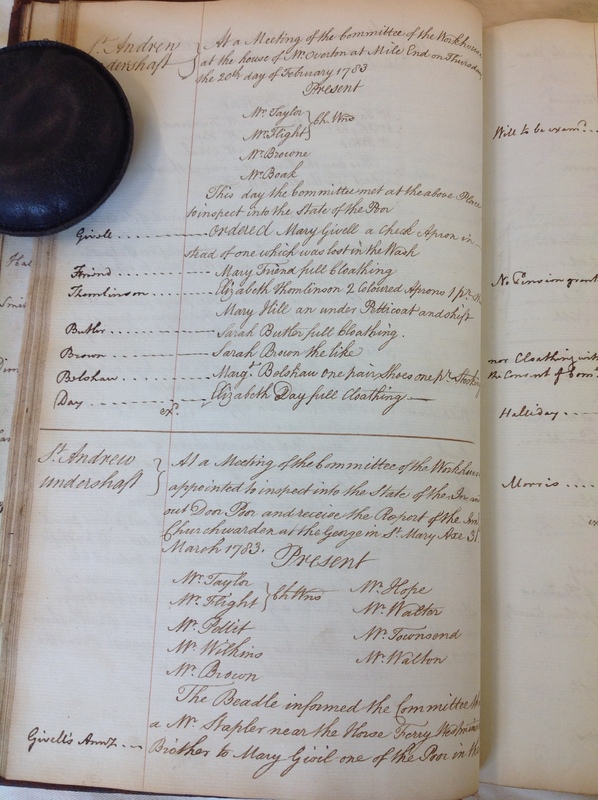 St. Andrew
undershaft
At a Meeting of the Committee of the Workhouse
at the house of Mr. Overton at Mile End on Thursday
the 20th day of February 1783
Present
Mr. Taylor
Mr. Flight } Ch. Wns
Mr. Browne
Mr. Boak
This day the Committee met at the above Place
to inspect into the State of the Poor
Givele ---------- Ordered Mary Givell a Check Apron in-
stead of one which was lost in the Wash
Friend ---------- Mary Friend full Cloathing
Thomlinson ---------- Elizabeth Thomlinson 2 Coloured Aprons 1 pr.
Mary Hill an under Petticoat and shift
Butler ---------- Sarah Butler full Cloathing.
Brown ---------- Sarah Brown the like
Bolshaw ---------- Margt. Bolshaw one pair Shoes one pr. Stocking
Day ---------- Elizabeth Day full Cloathing
exd.
St. Andrew
undershaft
At a Meeting of the Committee of the Workhouse
appointed to inspect into the State of the In and
out Door Poor and receive the Report of the
Churchwarden at the George in St. Mary Axe 31
March 1783.
Present
Mr. Taylor
Mr. Flight } Ch. Wns
Mr. Pellit
Mr. Wilkins
Mr. Brown
Mr. Hope
Mr. Walter
Mr. Townsend
Mr. Walton
The Beadle informed the Committee
a Mr. Stapler near the Horse Ferry
Givell's Annty. --- Brother to Mary Givil one of the Poor in the
Will to be exam
No Pension grant
nor Cloathing with
the Consent of Com
Halliday ----
Morris ----